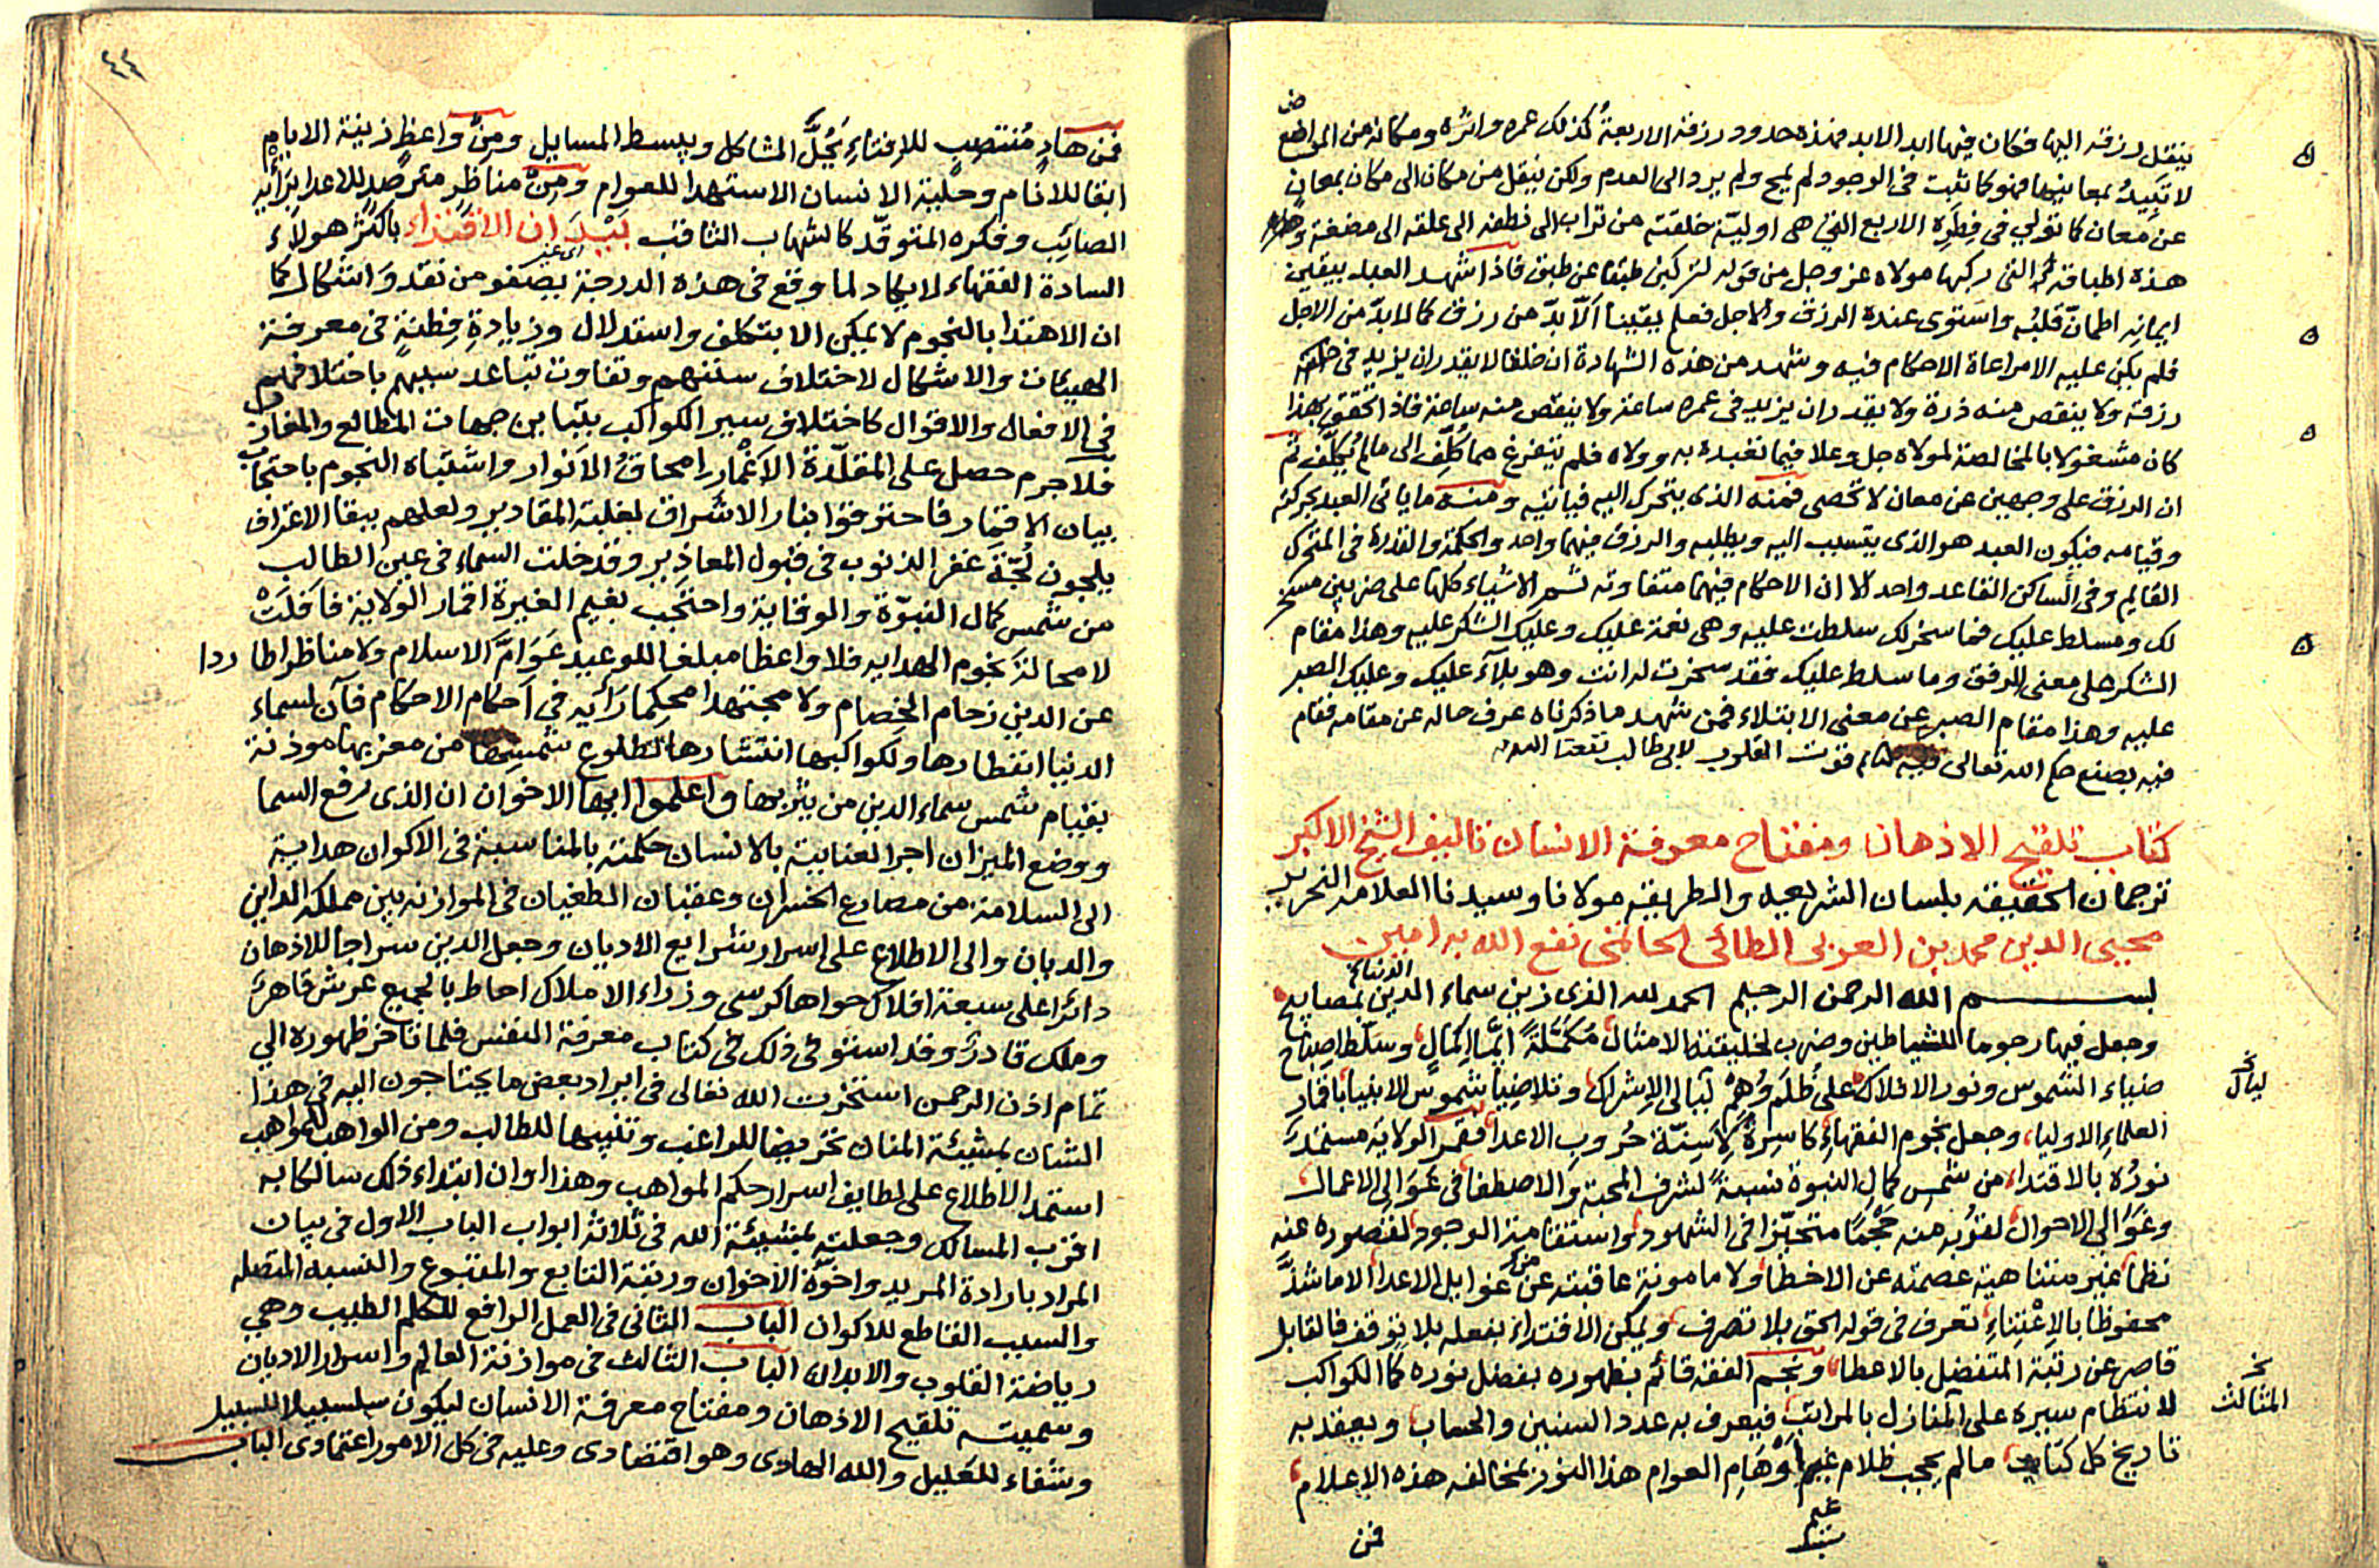 ينتقل رزقه اليها فكان فيها ابد الابد فهذه حدود رزقه الاربعة كذلك عمره واثره ومكانه من المواضع
لا تبيد بمعانيها فهو كما ثبت فى الوجود لم يمح ولم يرد الى العدم ولكن ينقل من مكان الى مكان بمعان
عن معان كما تولى فى فطره الاربع التى هى اولية خلقته من تراب الى نطفه الى علقه الى مضغة
هذه اطباقه التى ركبها مولاه عز وجل من قوله لتركبن طبقا عن طبق فاذا شهد العبد بيقين
ايمانه اطمان قلبه واستوى عنده الرزق والاجل فعلم يقينا الا بد من رزق كما لا بد من الاجل
فلم يكن عليه الا مراعاة الاحكام فيه وشهد من هذه الشهادة ان خلقا لا يقدر ان يزيد فى
رزقه ولا ينقص منه ذرة ولا يقدر ان يزيد فى عمره ساعة ولا ينقص منه ساعة فاذا تحقق بهذا
كان مشغولا بالمخالصة لمولاه جل وعلا فيما تعبده به وولاه فلم يتفرغ مما كلف الى مالم يكلف ثم
ان الرزق على وجهين عن معان لا تحصى فمنه الذى يتحرك اليه فياتيه ومنه ما ياتى العبد بحركته
وقيامه فيكون العبد هو الذى يتسبب اليه ويطلبه والرزق فيهما واحد والحكمة والقدرة فى المتحرك
القايم وفى الساكن القاعد واحد الا ان الاحكام فيهما متفاوته ثم الاشياء كلها على ضربين مسخر
لك ومسلط عليك فما سخر لك سلطت عليه وهى نعمة عليك وعليك الشكر عليه وهذا مقام
الشكر على معنى الرفق وما سلط عليك فقد سخرت له انت وهو بلآء عليك وعليك الصبر
عليه وهذا مقام الصبر عن معنى الابتلاء فمن شهد ما ذكرناه عرف حاله عن مقامه فقام
فيه بصنع حكم الله تعالى قوت القلوب لابى طالب نفعنا الله به
كتاب تلقيح الاذهان ومفتاح معرفة الانسان تاليف الشيخ الاكبر
ترجمان الحقيقه بلسان الشريعه والطريقه مولانا وسيدنا العلامه النحرير
محيى الدين محمد بن العربى الطائى الحاتمى نفع الله به امين
الدنيا
بسم الله الرحمن الرحيم الحمد لله الذى زين سماء الدين بمصابيح
وجعل فيها رجوما للشياطين وضرب لخليقته الامثال مكملة ايما اكمال وسلط اصباح
ضياء الشموس ونور الافلاك على ظلم وهم ليالى الاشراك وتلا ضياء شموس الانبيا باقمار
ليال
العلماء الاوليا، وجعل نجوم الفقهاء كاسرة لاسنة حروب الاعدا، فقمر الولاية مستمد
نوره بالاقتداء من شمس كمال النبوة نسبة لشرف المحبة والاصطفا فى عوالى الاعمال
وغوالى الاحوال لقربه منه حجما متحيزا فى الشهود واستقامة الوجود لقصوره عنه
نظما غير متناهية عصمته عن الاخطا ولا مامونة عاقبته عن غوايل الاعدا الا ما شذ
محفوظا بالاعتناء تعرف فى قوله الحق بلا تصرف ويمكن الاقتداء بفعله بلا توقف فالقابل
قاصر عن رتبة المتفضل بالاعطا، ونجم الفقه قائم بظهوره بفضل نوره كما الكواكب
لانتظام سيره على المنازل بالمراتب فيعرف به عدد السنين والحساب ويعقد به
تاريخ كل كتاب مالم يحجب ظلام غيم اوهام العوام هذا النور بمخالفه هذه الاعلام
غيم
فمن
٤٤
فمن هاد منتصب للافتاء يحل المشاكل ويبسط المسايل ومن واعظ زينة الايام
ابقا للانام وحلية الانسان الاستهدا للعوام ومن مناظر مترصد للاعدا برايه
الصائب وفكره المتوقد كالشهاب الثاقب بيد ان الاقتداء باكثر هولاء
السادة الفقهاء لا يكاد لما وقع فى هذه الدرجة يصفو من نقد واشكال كما
ان الاهتدا بالنجوم لا يمكن الا بتكلف واستدلال وزيادة فطنة فى معرفة
الهيئات والاشكال لاختلاف سننهم وتفاوت تباعد سبيهم باختلافهم
فى الافعال والاقوال كاختلاف سير الكواكب بتباين جهات المطالع والمغارب
فلا جرم حصل على المقلدة الاغمار امحاق الانوار واشتباه النجوم باحتجاب
بيان الاقمار فاحترقوا بنار الاشراف لغلبة المقادير ولعلهم ببقا الاعتراف
يلجون لجة غفر الذنوب فى قبول المعاذير وقد خلت السماء فى عين الطالب
من شمس كمال النبوة والموقاية واحتجب بغيم الغيرة اقمار الولاية فافلت
لا محالة نجوم الهدايه فلا واعظا مبلغا للوعيد عوام الاسلام ولا مناظرا طاردا
عن الدين زحام الخصام ولا مجتهدا محكما رأيه فى احكام الاحكام فآن لسماء
الدنيا انفطارها ولكواكبها انتثارها لطلوع شمسها من مغربها موذنة
بقيام شمس سماء الدين من يثربها واعلموا ايها الاخوان ان الذى رفع السما
ووضع الميزان اجرا لعنايته بالانسان حكمته بالمناسبة فى الاكوان هداية
الى السلامة من مصارع الخسران وعقبان الطغيان فى الموازنه بين مملكه الداين
والديان والى الاطلاع على اسرار شرايع الاديان وجعل الدين سراجا للاذهان
دائرا على سبعة افلاك حواها كرسى وزراء الاملاك احاط بالجميع عرش قاهر
وملك قادر وقد استوفى ذلك فى كتاب معرفة النفس فلما تاخر ظهوره الى
تمام اذن الرحمن استخرت الله تعالى فى ايراد بعض ما يحتاجون اليه فى هذا
الشان بمشيئة المنان تحريضا للراغب وتنبيها للطالب ومن الواهب المواهب
استمد الاطلاع على لطايف اسرار حكم المواهب وهذا اوان ابتداء ذلك سالكا به
اقرب المسالك وجعلته بمشيئة الله فى ثلاثة ابواب الباب الاول فى بيان
المراد بارادة المريد واخوة الاخوان ورتبة التابع والمتبوع والنسبه المتصله
والسبب القاطع للاكوان الباب الثانى فى العمل الرافع للكلم الطيب وهى
رياضة القلوب والابدان الباب الثالث فى موازنة العالم واسرار الاديان
وسميته تلقيح الاذهان ومفتاح معرفة الانسان ليكون سلسبيلا للسبيل
وشفاء للعليل والله الهادى وهو اقتصادى وعليه فى كل الامور اعتمادى الباب